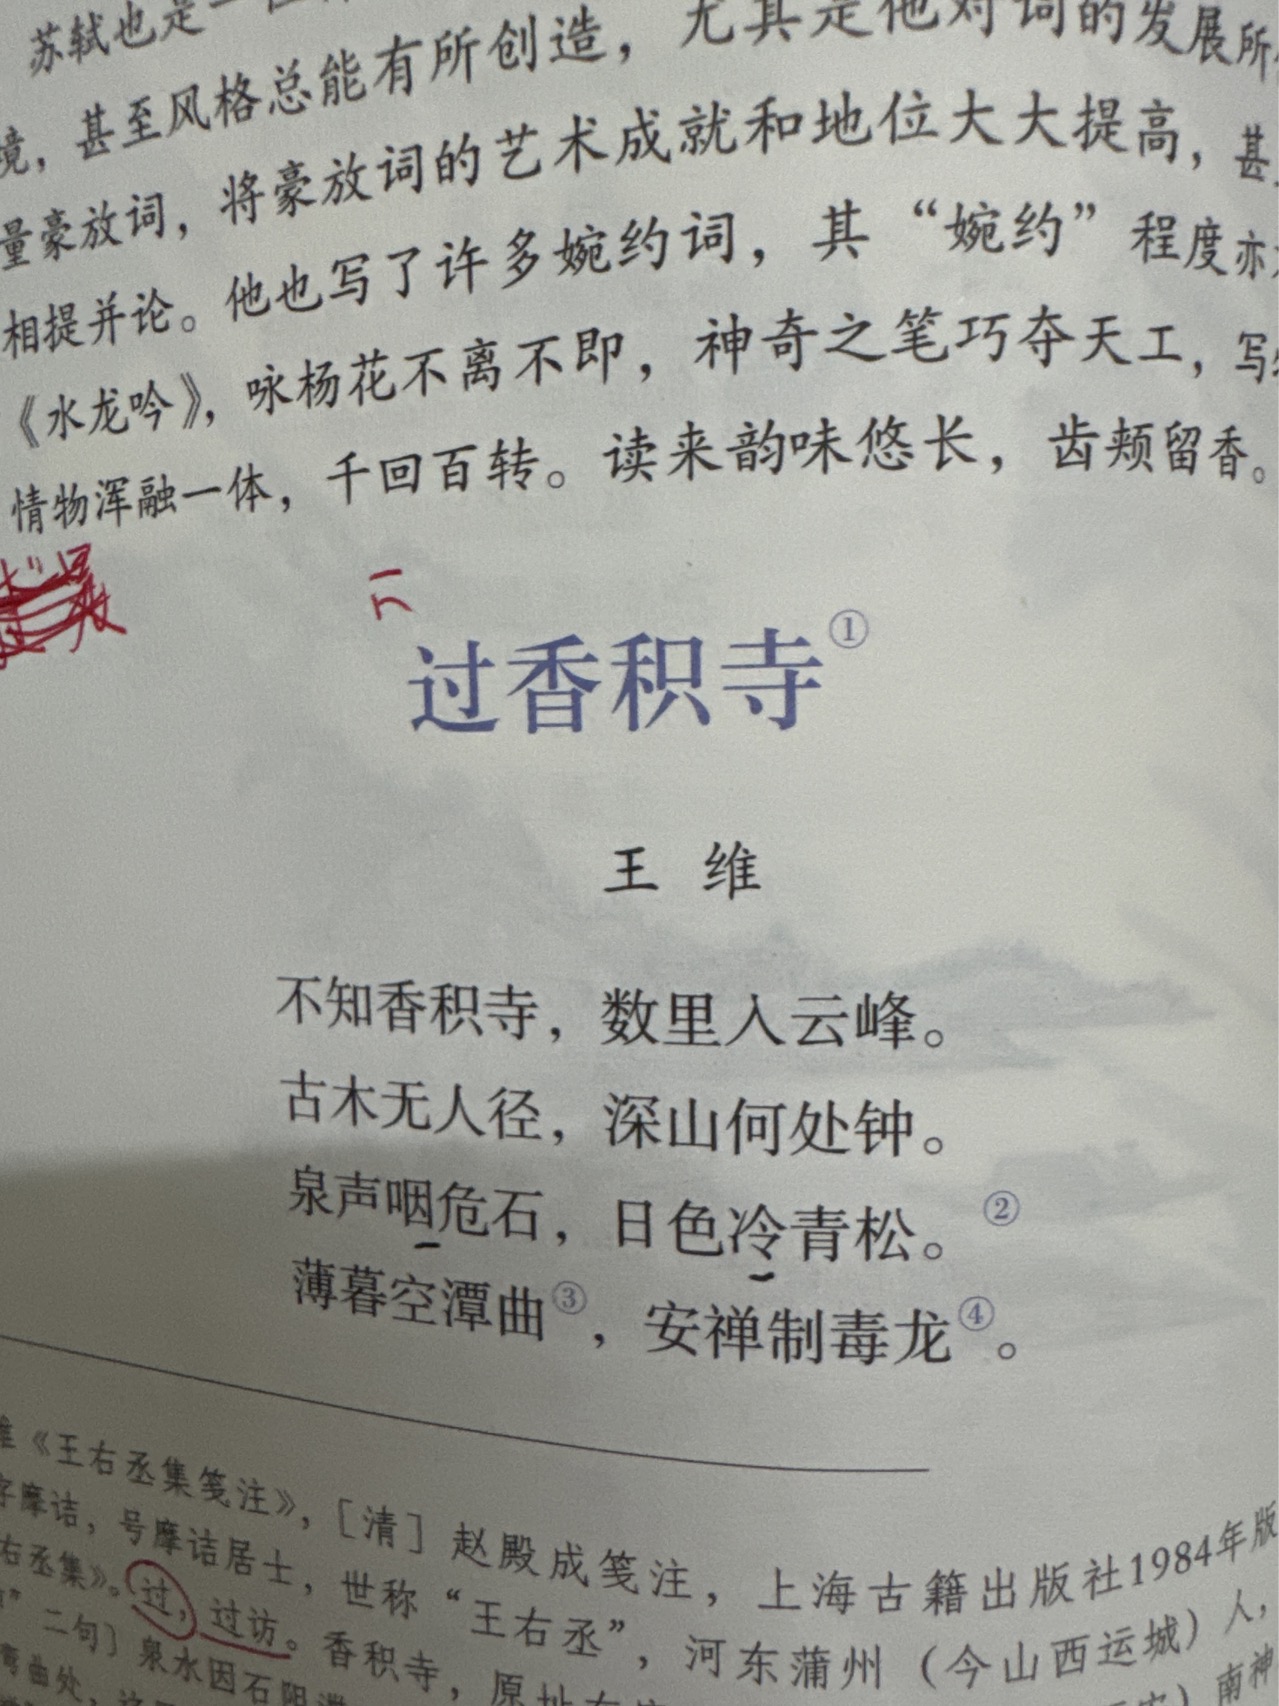 苏轼也是一
境，甚至风格总能有所创造，尤其是他对词的发展所
量豪放词，将豪放词的艺术成就和地位大大提高，甚
相提并论。他也写了许多婉约词，其“婉约”程度亦
《水龙吟》，咏杨花不离不即，神奇之笔巧夺天工，写
情物浑融一体，千回百转。读来韵味悠长，齿颊留香。
过香积寺①
王 维
不知香积寺，数里入云峰。
古木无人径，深山何处钟。
泉声咽危石，日色冷青松。②
薄暮空潭曲③，安禅制毒龙④。
维《王右丞集笺注》，［清］赵殿成笺注，上海古籍出版社1984年版
字摩诘，号摩诘居士，世称“王右丞”，河东蒲州（今山西运城）人，
右丞集》。过，过访。香积寺，原址在
”二句］泉水因石阻
弯曲处，
南神